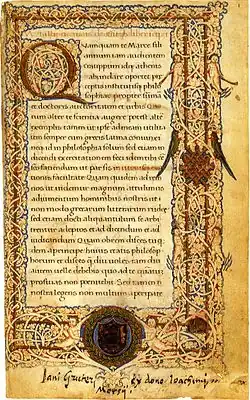 Quamquam te Marce fili
annum iam audientem
cratippum idq; athenis
abundare oportet pre
ceptis institutisq; philo
sophiae propter summā
et doctoris auctoritatem et urbis Quo
rum alter te scientia augere potest alte
exemplis tamen ut ipse ad meam utilita
tem semper cum grecis latina coniunxi
neq; id in philosophia solum sed etiam in
dicendi exercitatione feci idem tibi cē
seo faciendum ut par sis in utriusq; oratio
nis facultate Quam quidem ad rem
nos ut uidemur magnum attulimus
adiumentum hominibus nostris ut
non modo grecarum literarum rudes
sed etiam docti aliquantulum se arbi
trentur adeptos et ad dicendum et ad
iudicandum Quam obrem disces tu q̄
dem a principe huius etatis philoso
phorum et disces q̄ diu uoles tam diu
autem uelle debebis quo ad te q̄ntum
proficias non penitebit Sed tamen
nostra legens non multum a peripate
Iani Gruteri
Ex dono Ioachimi
Morsij